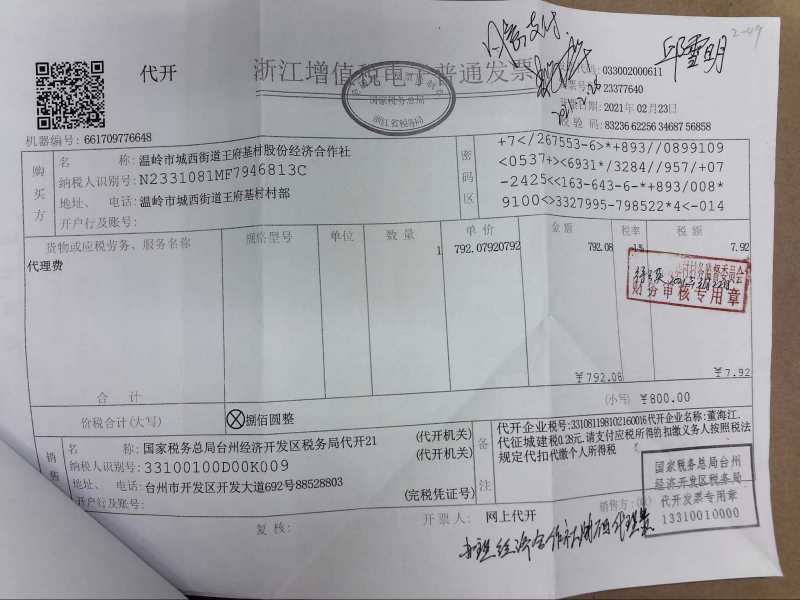 2-49
代开
浙江增值税电子普通发票
国家税务总局
浙江省税务局
日常支付
邱雪明
发票代码: 033002000611
发票号码: 23377640
开票日期: 2021年02月23日
校验码: 83236 62256 34687 56858
机器编号: 661709776648
购买方
名 称: 温岭市城西街道王府基村股份经济合作社
纳税人识别号: N2331081MF7946813C
地址、电话: 温岭市城西街道王府基村村部
开户行及账号:
密码区
+7</267553-6>*+893//0899109
<0537+><6931*/3284//957/+07
-2425<<163-643-6-*+893/008*
9100<>3327995-798522*4<-014
货物或应税劳务、服务名称 规格型号 单位 数量 单价 金额 税率 税额
代理费 1 792.07920792 792.08 1% 7.92
村务监督委员会
财务审核专用章
合 计 ¥792.08 ¥7.92
价税合计(大写) ⊗捌佰圆整 (小写) ¥800.00
销售方
名 称: 国家税务总局台州经济开发区税务局代开21 (代开机关)
纳税人识别号: 33100100D00K009 (代开机关)
地址、电话: 台州市开发区开发大道692号88528803
开户行及账号: (完税凭证号)
备注
代开企业税号:331081198102160016 代开企业名称:董海江.
代征城建税0.28元.请支付应税所得的扣缴义务人按照税法
规定代扣代缴个人所得税
国家税务总局台州
经济开发区税务局
代开发票专用章
13310010000
复核: 开票人: 网上代开 销售方: (章)
办理经济合作社代理费